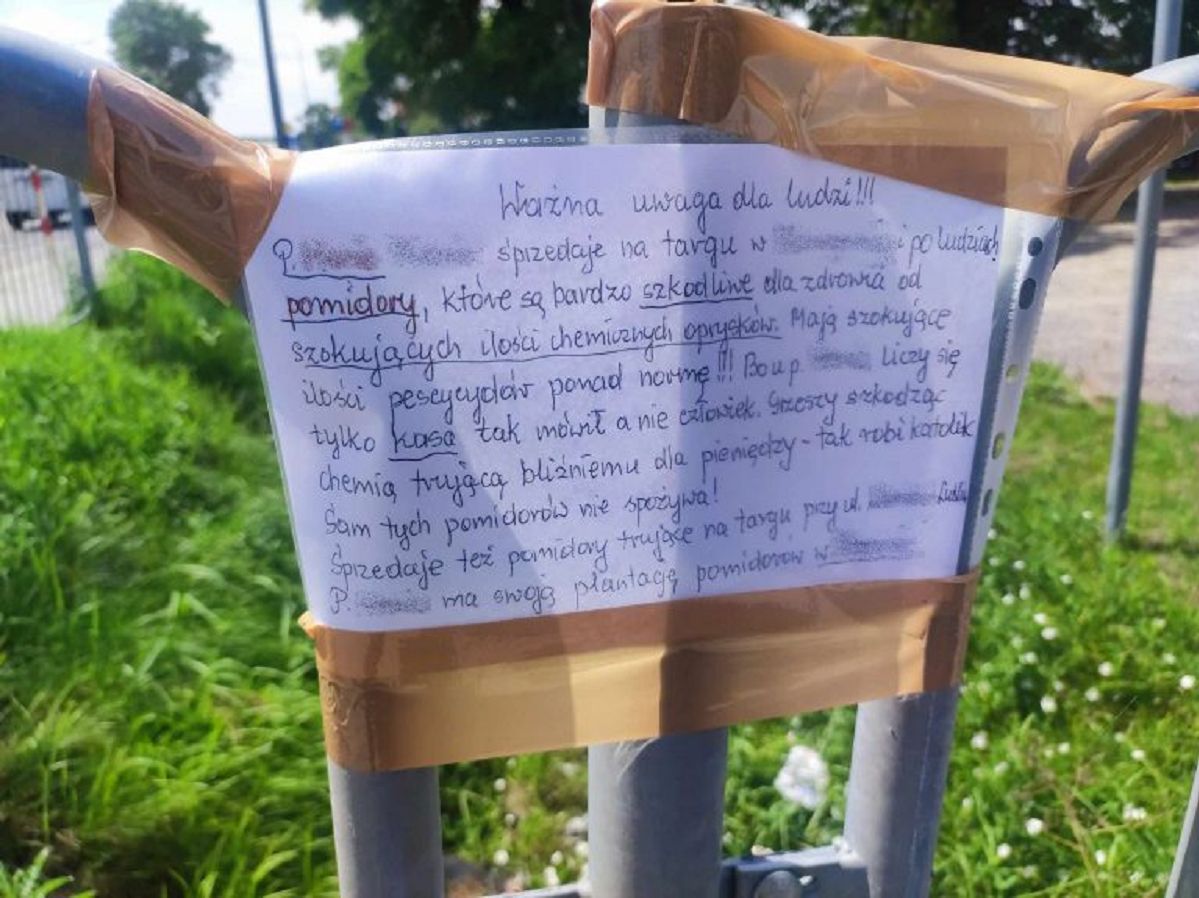 Ważna uwaga dla ludzi!!!
P. sprzedaje na targu w i po ludziach!
pomidory, które są bardzo szkodliwe dla zdrowia od
szokujących ilości chemicznych oprysków. Mają szokujące
ilości pescycydów ponad normę!!! Bo u p. liczy się
tylko kasa tak mówił a nie człowiek. Grzeszy szkodząc
chemią trującą bliźniemu dla pieniędzy - tak robi katolik
Sam tych pomidorów nie spożywa!
Sprzedaje też pomidory trujące na targu przy ul.
P. ma swoją plantację pomidorów w